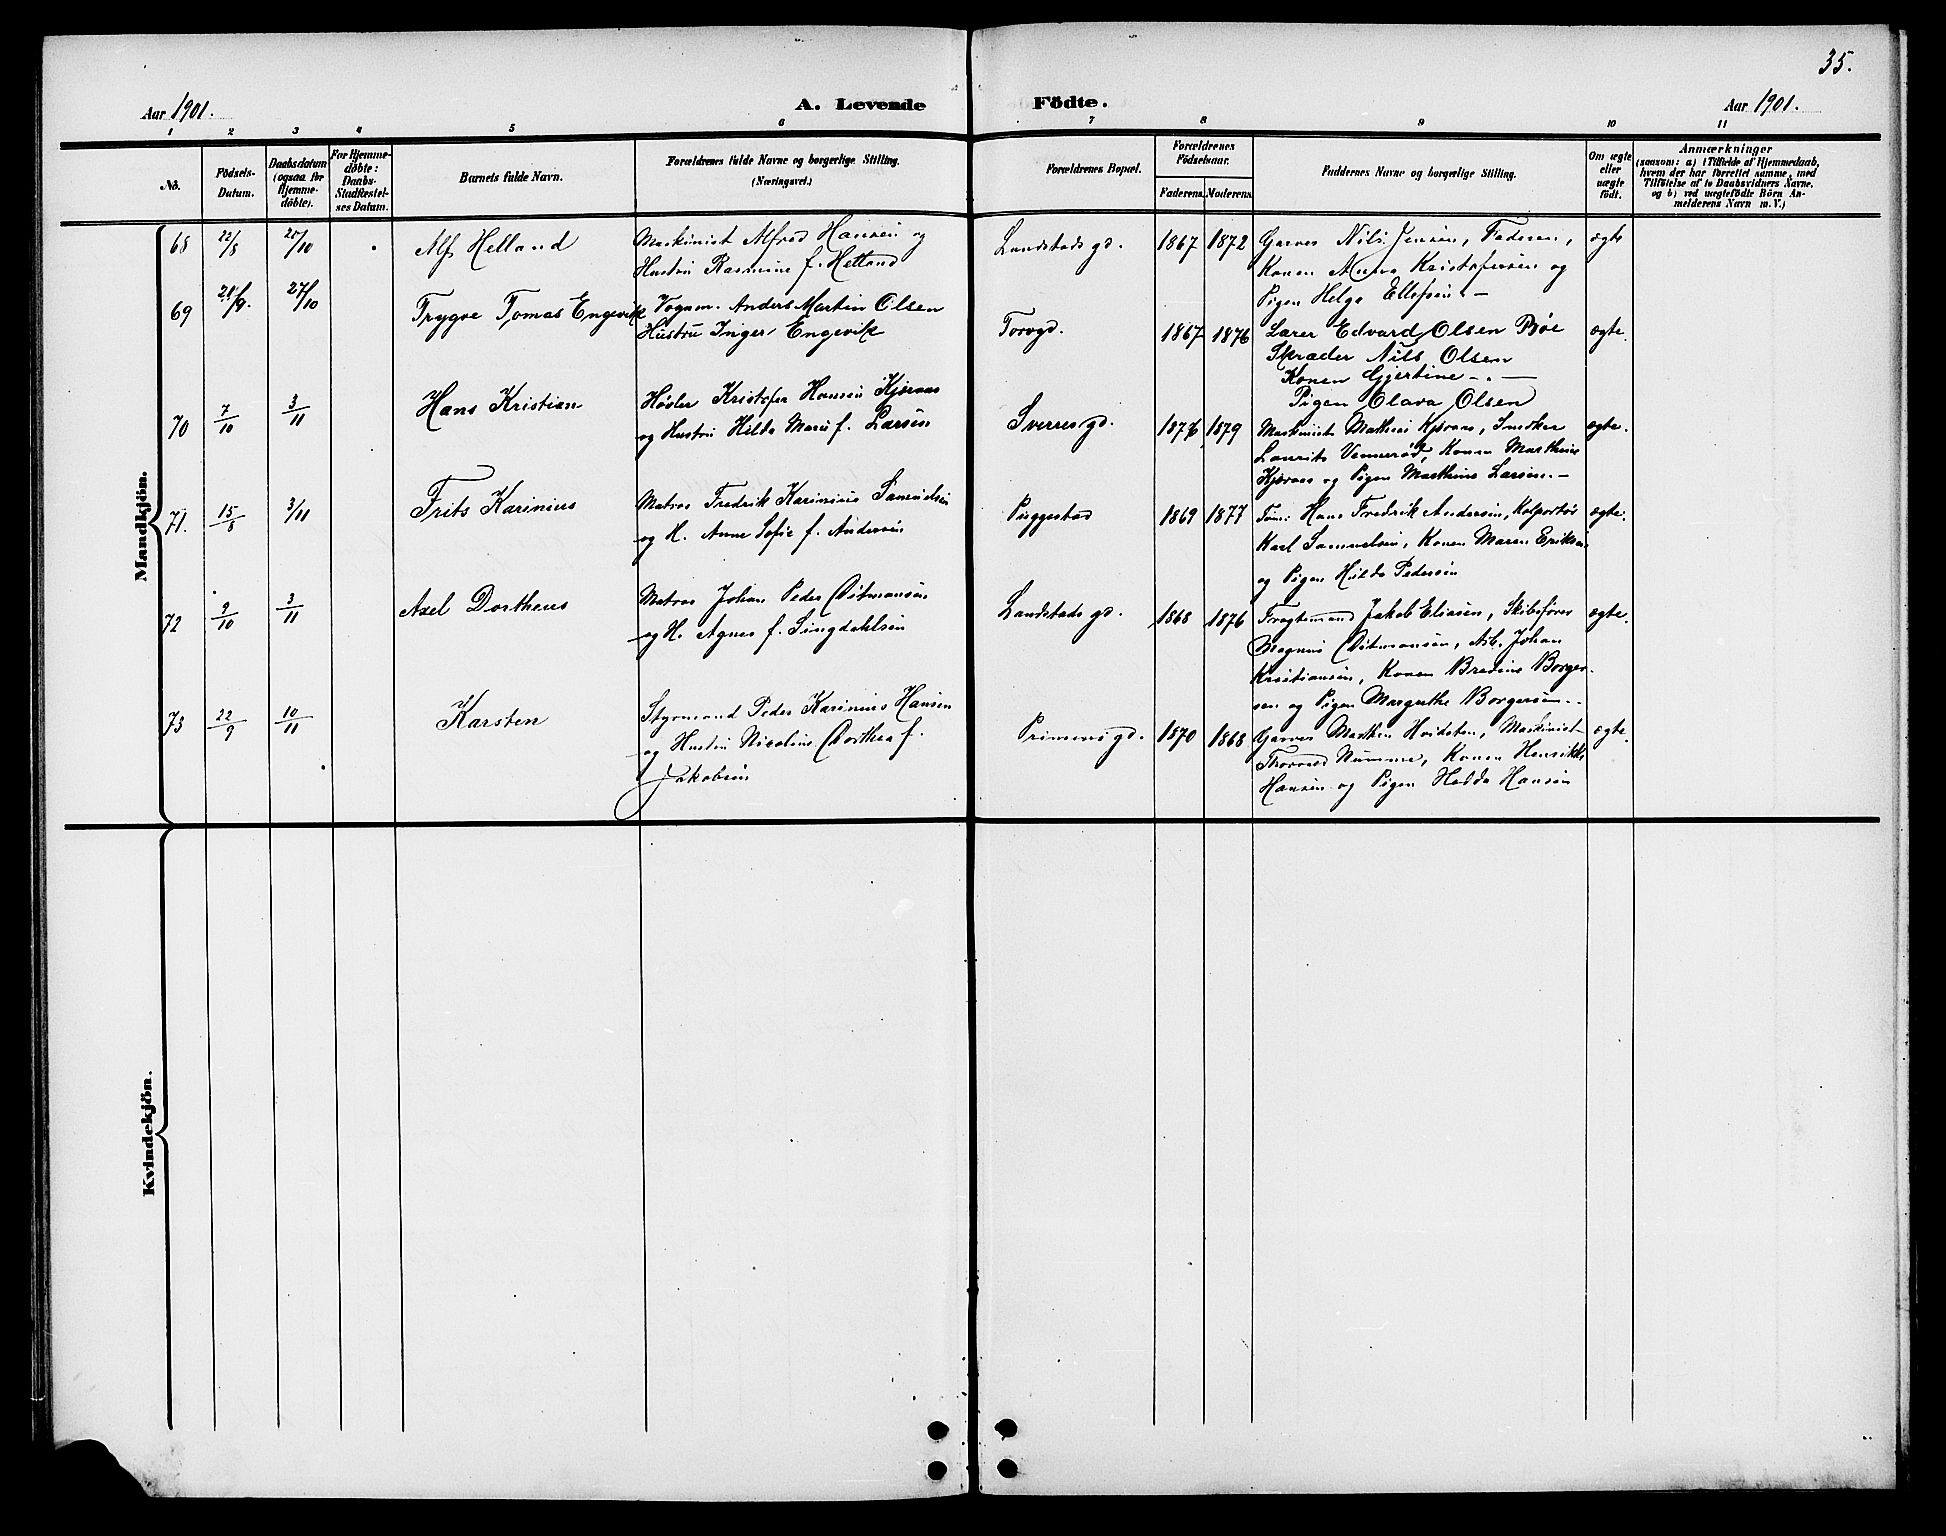 35.
Aar 1901. A. Levende Födte. Aar 1901.
1 2 3 4 5 6 7 8 9 10 11
No. Födsels-Datum. Daabsdatum (ogsaa for Hjemme-döbte). For Hjemme-döbte: Daabs-Stadfæstel-ses Datum. Barnets fulde Navn. Forældrenes fulde Navne og borgerlige Stilling. (Næringsvei.) Forældrenes Bopæl. Forældrenes Födselsaar. Faderens. Moderens. Faddernes Navne og borgerlige Stilling. Om ægte eller uægte födt. Anmærkninger (saasom: a) i Tilfælde af Hjemmedaab, hvem der har forrettet samme, med Tilföielse af to Daabsvidners Navne, og b) ved uægtefödte Börn An-melderens Navn m. V.)
Mandkjön.
68 22/8 20/10 Alf Helland Maskinist Alfred Hansen og Landstads gd. 1867 1872 Garver Nils Jensen, Faderen, ægte
Hustru Rasmine f. Helland Konen Anna Kristofersen og
Pigen Helga Ellefsen. —
69 27/10 Trygve Tomas Engevik Vognm. Anders Martin Olsen Torvgd. 1867 1876 Lærer Edvard Olsen Bøe ægte.
Hustru Inger Engevik Skræder Nils Olsen
Konen Gjertine —„—
Pigen Olava Olsen
70 7/10 3/11 Hans Kristian Høvler Kristofer Hansen Kjøraas Sverresgd. 1876 1879 Maskinist Mathias Kjøraas, Snedker ægte.
og Hustru Hilda Marie f. Larsen Laurits Vennerød, Konen Marthine
Kjøraas og Pigen Marthine Larsen. —
71. 15/8 3/11 Frits Karinius Matros Fredrik Karinius Samuelsen Puggestad 1869 1877 Tøm. Hans Fredrik Andersen, Kolportør ægte.
og H. Anne Sofie f. Andersen Karl Samuelsen, Konen Maren Eriksen
og Pigen Hilda Pedersen
72 9/10 3/11 Axel Dortheus Matros Johan Peder Ditmansen Landstads gd. 1868 1876 Jakob Eliasen, Skibsfører ægte.
og H. Agnes f. Singdahlsen Magnus Ditmansen, Arb. Johan
Kristiansen, Konen Bredine Borger-
sen og Pigen Margrethe Borgersen.
73 22/9 10/11 Karsten Styrmand Peder Karinius Hansen Primusgd. 1870 1868 Garver Hvidsten, Maskinist ægte.
og Hustru Nicoline Dorthea f. Thorvald Numme, Konen Henrikke
Jakobsen Hansen og Pigen Hedda Hansen
Kvindekjön.